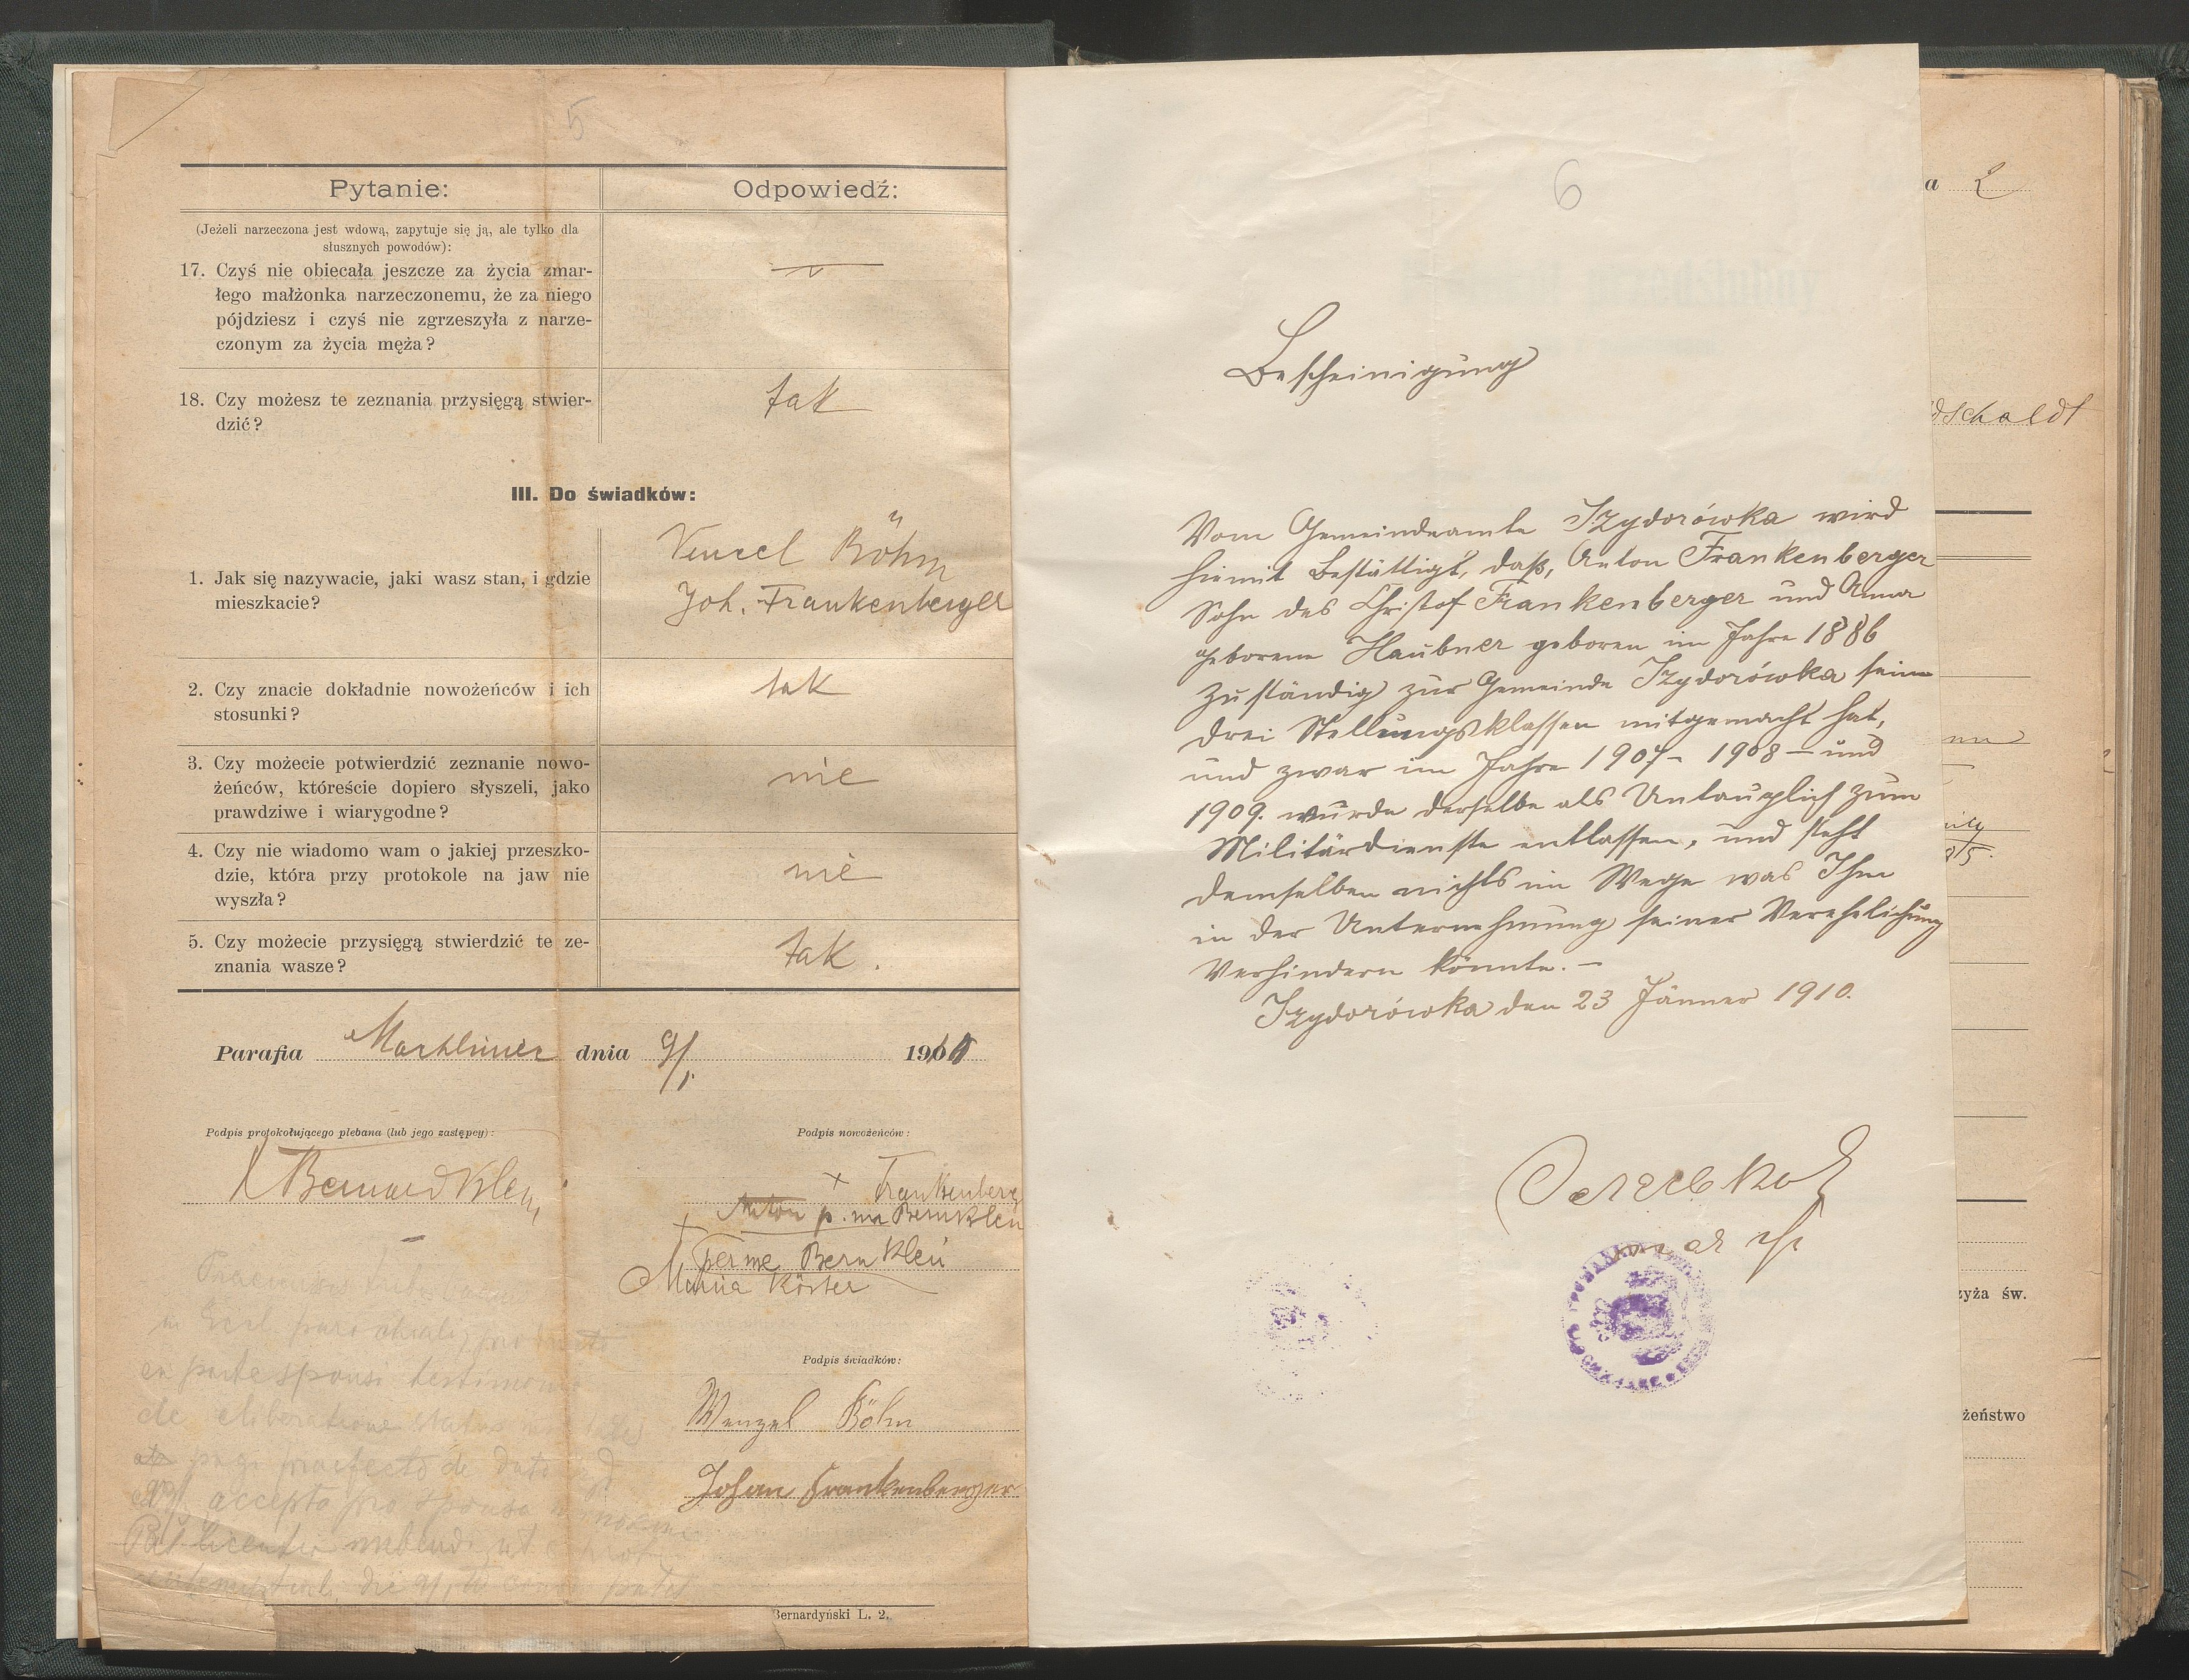 5
Pytanie:
Odpowiedź:
(Jeżeli narzeczona jest wdową, zapytuje się ją, ale tylko dla
słusznych powodów):
17. Czyś nie obiecała jeszcze za życia zmar-
łego małżonka narzeczonemu, że za niego
pójdziesz i czyś nie zgrzeszyła z narze-
czonym za życia męża?
18. Czy możesz te zeznania przysięgą stwier-
dzić?
tak
III. Do świadków:
1. Jak się nazywacie, jaki wasz stan, i gdzie
mieszkacie?
Vencel Böhm
Joh. Frankenberger
2. Czy znacie dokładnie nowożeńców i ich
stosunki?
tak
3. Czy możecie potwierdzić zeznanie nowo-
żeńców, któreście dopiero słyszeli, jako
prawdziwe i wiarygodne?
nie
4. Czy nie wiadomo wam o jakiej przeszko-
dzie, która przy protokole na jaw nie
wyszła?
nie
5. Czy możecie przysięgą stwierdzić te ze-
znania wasze?
tak.
Parafia dnia 9/1. 1910
Podpis protokołującego plebana (lub jego zastępcy):
Bernard Klein
Podpis nowożeńców:
+ Frankenberg
Anton p. me Bern Klein
+ per me Bern Klein
Maria Körner
Podpis świadków:
Wenzel Böhm
Johan Frankenberger
in Eccl. parochiali
ex parte sponsi testimonio
de
pagi praefecto de dato
accepto pro sponsa
Bernardyński L. 2.
6
Bescheinigung
Vom Gemeindeamte Izydorówka wird
hiemit Bestättigt, daß, Anton Frankenberger
Sohn des Christof Frankenberger und Anna
geborene Haubner geboren im Jahre 1886
zuständig zur Gemeinde Izydorówka seine
drei Stellungsklassen mitgemacht hat,
und zwar im Jahre 1907 - 1908 - und
1909. wurde derselbe als Untauglich zum
Militärdienste entlassen, und steht
demselben nichts im Wege was Ihm
in der Unternehmung seiner Verehelichung
Verhindern könnte. -
Izydorówka den 23 Jänner 1910.
a 2
dschaldt
zyża św.
żeństwo